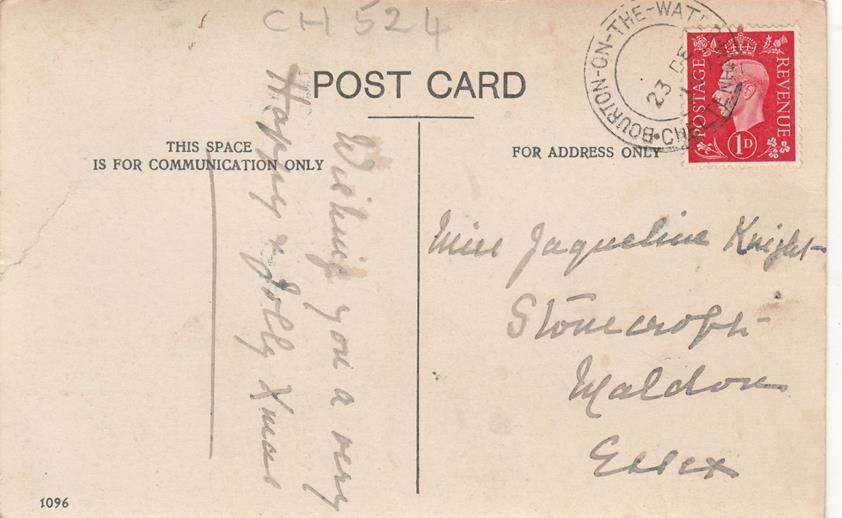 CH 524
POST CARD
THIS SPACE
IS FOR COMMUNICATION ONLY
FOR ADDRESS ONLY
BOURTON-ON-THE-WATER
23 DE
POSTAGE REVENUE
1D
Wishing you a very
Happy & Jolly Xmas
Miss Jaqueline Knight
Stonecroft
Maldon
Essex
1096